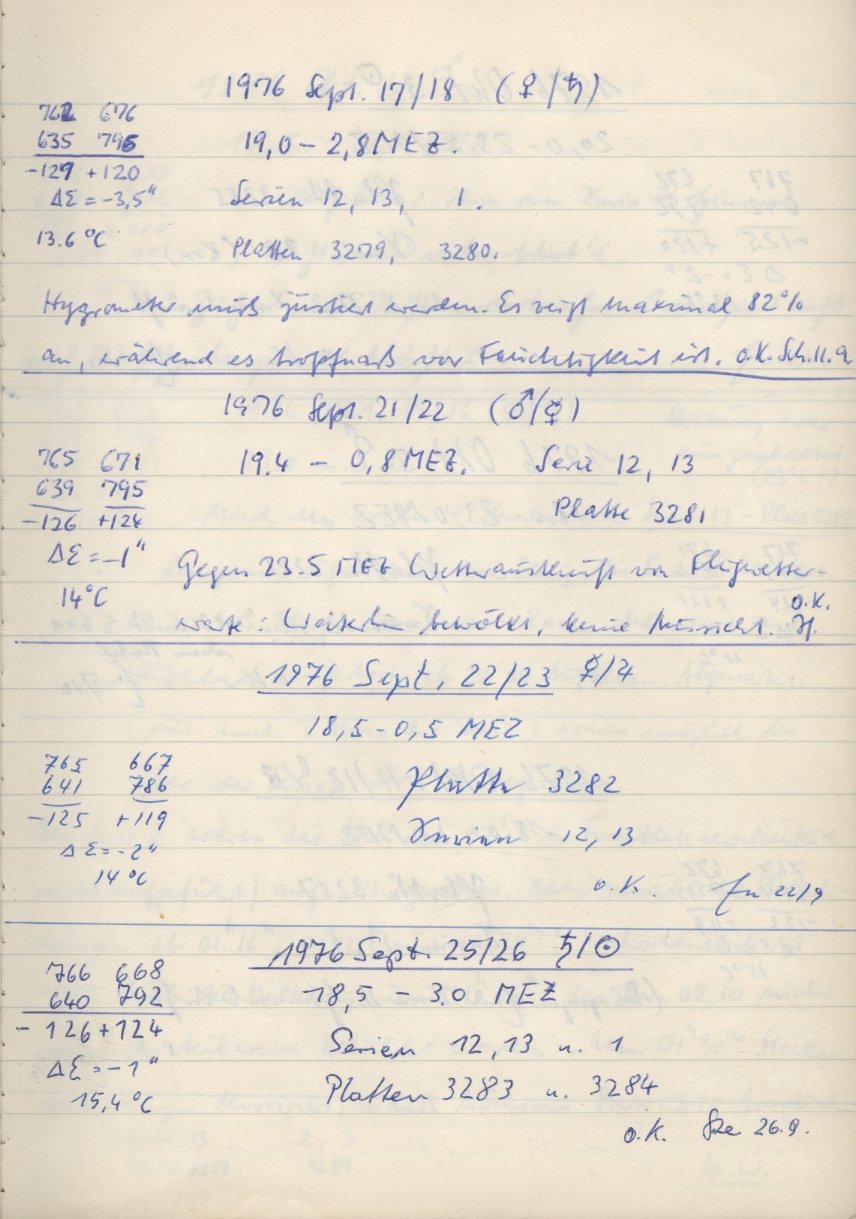 1976 Sept. 17/18 (♀/♄)
762 676
635 796
-127 +120
19,0 - 2,8 MEZ.
ΔΣ = -3,5"
Serien 12, 13, 1.
13.6 °C
Platten 3279, 3280.
Hygrometer muß justiert werden. Es zeigt maximal 82%
an, während es tropfnaß vor Feuchtigkeit ist. o.K. Sch. 11.9
1976 Sept. 21/22 (♂/☿)
765 671
639 795
-126 +124
19.4 - 0,8 MEZ. Serie 12, 13
Platte 3281
ΔΣ = -1"
14°C
Gegen 23.5 MEZ Wetterauskunft von Flugwetter-
warte: Weiterhin bewölkt, keine Aussicht. o.K.
1976 Sept. 22/23 ☿/♃
18,5 - 0,5 MEZ
765 667
641 786
-125 +119
Platte 3282
Serien 12, 13
ΔΣ = -2"
14 °C
o.K. 22/9
1976 Sept. 25/26 ♄/☉
766 668
640 792
- 126 +124
18,5 - 3.0 MEZ
Serien 12, 13 u. 1
ΔΣ = -1"
15,4 °C
Platten 3283 u. 3284
o.K. 26.9.